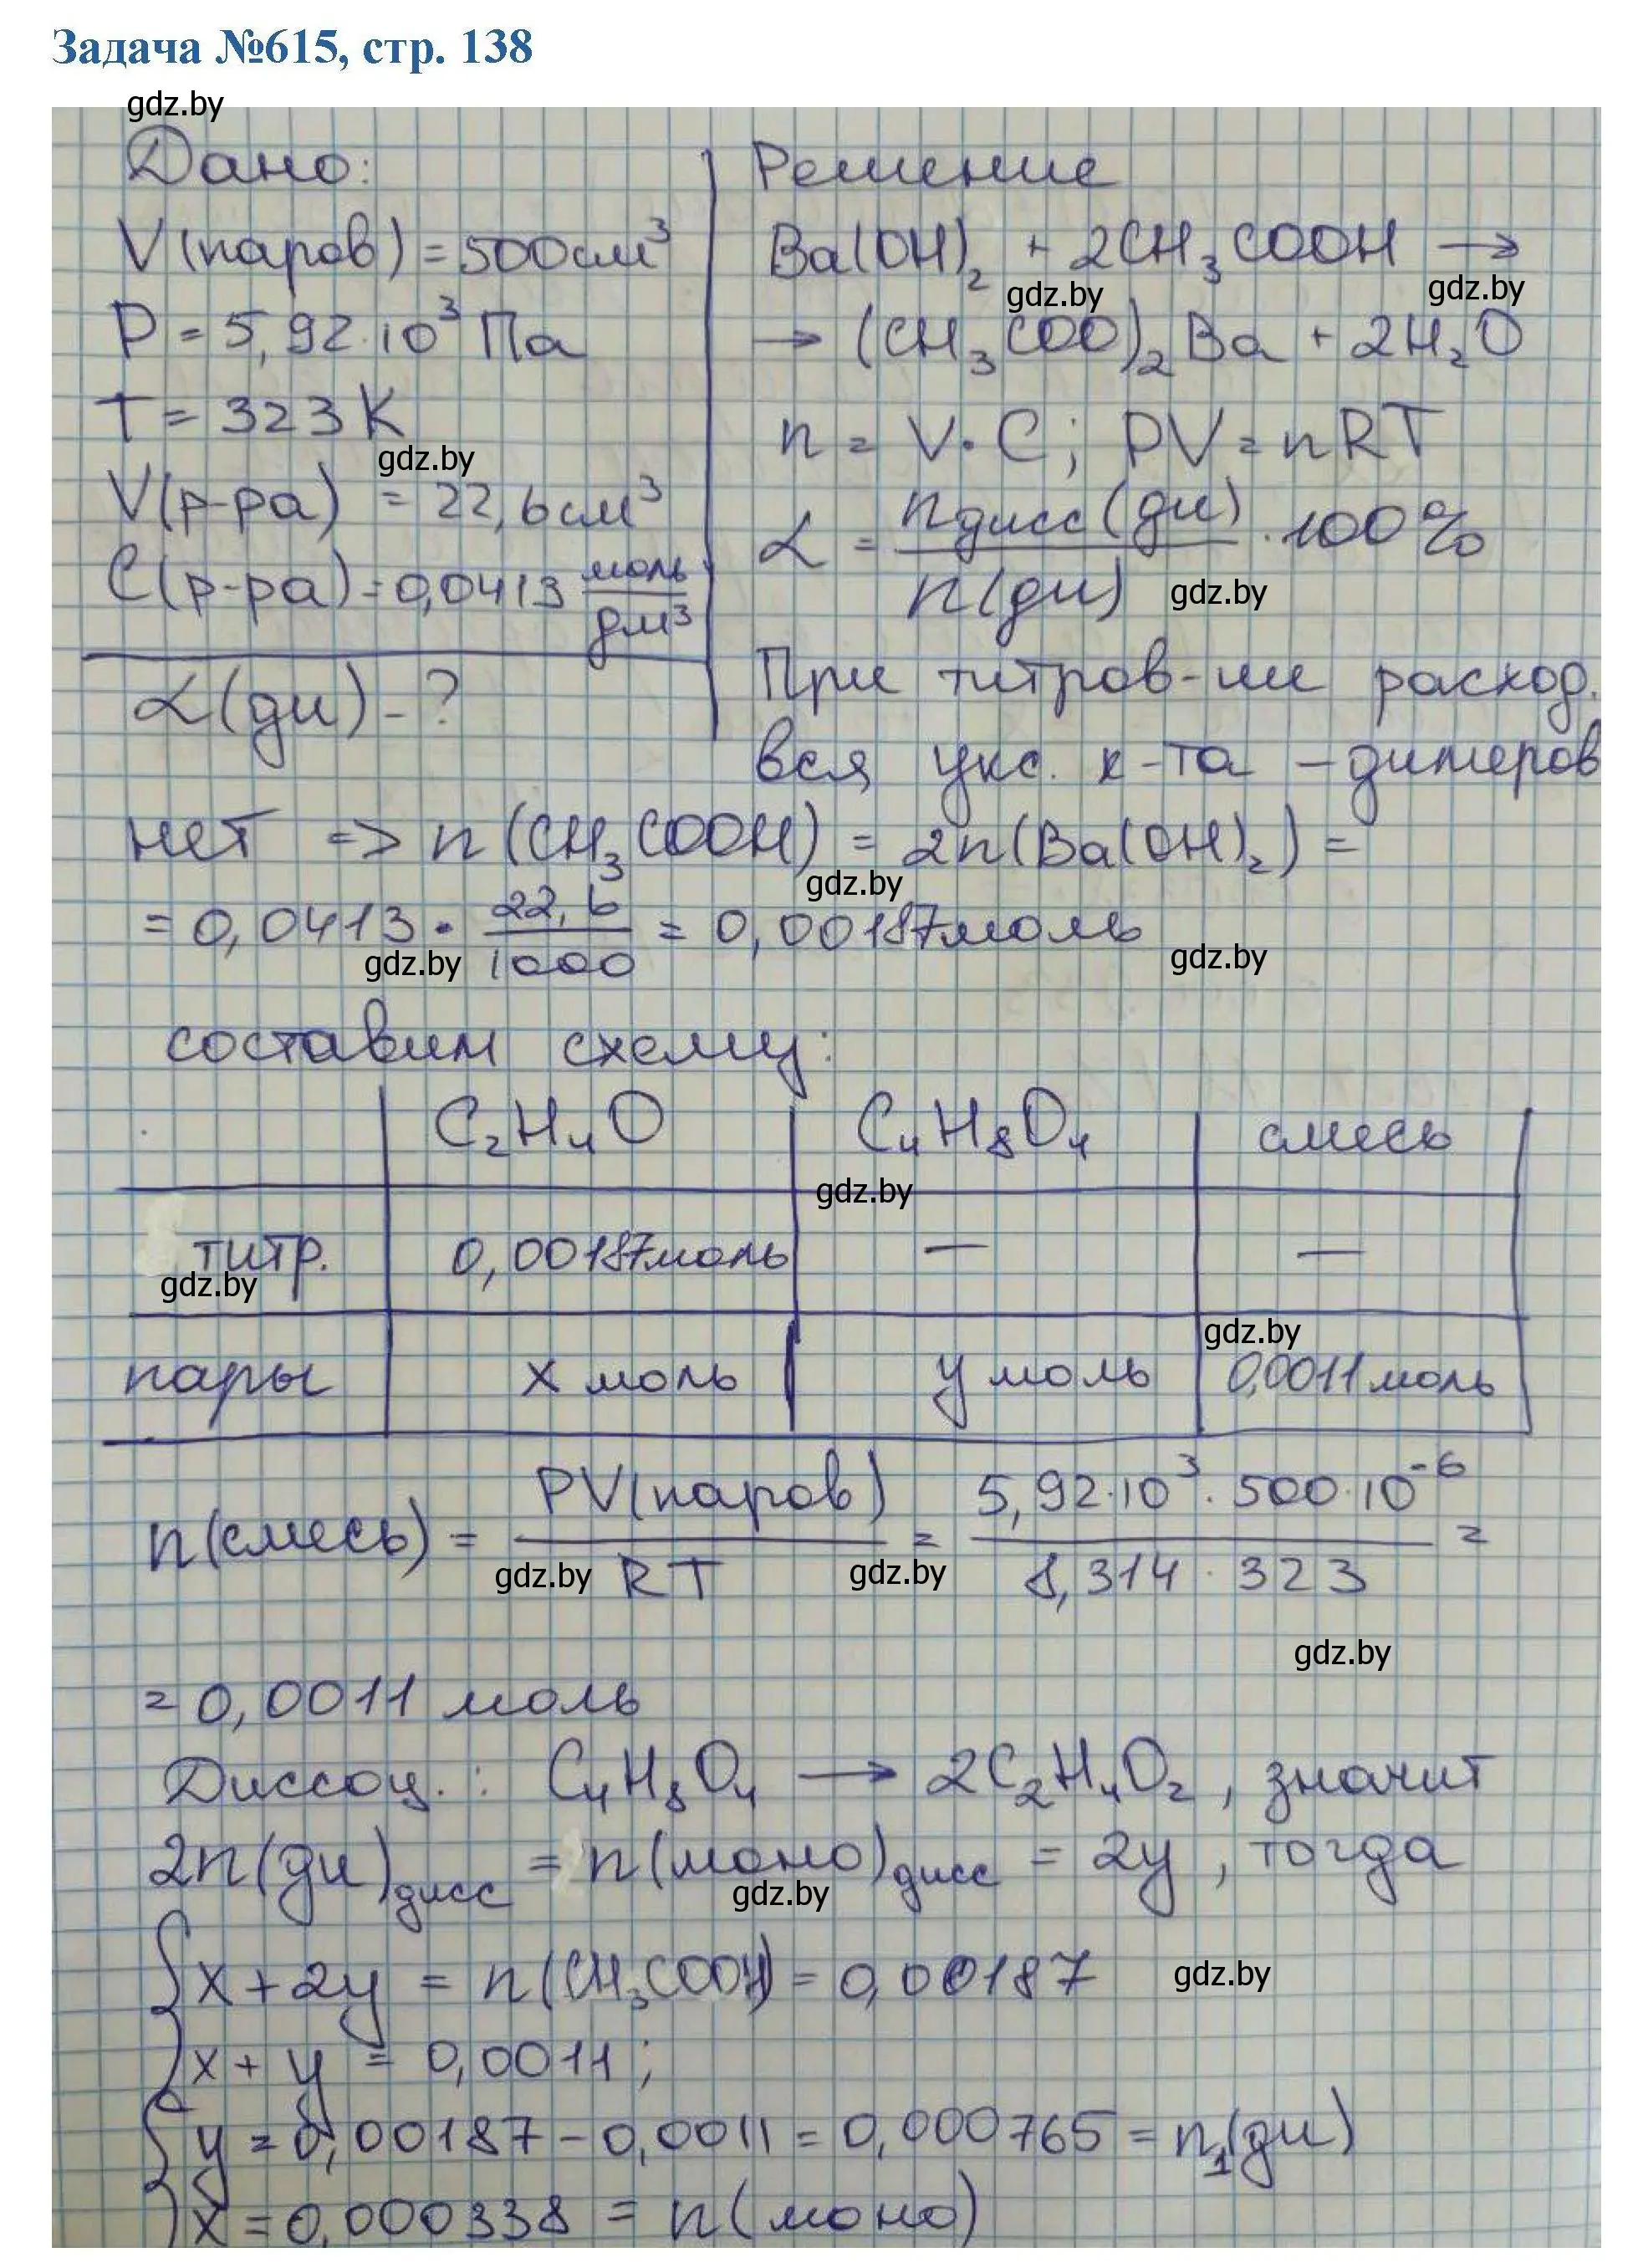 Задача №615, стр. 138
gdz.by
Дано:
V(паров) = 500 см³
P = 5,92·10³ Па
T = 323 K
gdz.by
V(р-ра) = 22,6 см³
C(р-ра) = 0,0413 моль/дм³
α(ди) - ?
Решение
Ba(OH)₂ + 2CH₃COOH →
gdz.by gdz.by
→ (CH₃COO)₂Ba + 2H₂O
n = V·C; PV = nRT
α = nдисс(ди)/n(ди) · 100%
gdz.by
При титров-ии расход.
вся укс. к-та – димеров
нет => n(CH₃COOH) = 2n(Ba(OH)₂) =
gdz.by
= 0,0413 · 22,6/1000 = 0,00187 моль
gdz.by gdz.by
составим схему:
C₂H₄O C₄H₈O₄ смесь
gdz.by
титр. 0,00187 моль — —
gdz.by gdz.by
пары x моль y моль 0,0011 моль
n(смесь) = PV(паров)/RT = 5,92·10³·500·10⁻⁶/8,314·323 =
gdz.by gdz.by
gdz.by
= 0,0011 моль
Диссоц.: C₄H₈O₄ → 2C₂H₄O₂, значит
2n(ди)дисс = n(моно)дисс = 2y, тогда
gdz.by
{x + 2y = n(CH₃COOH) = 0,00187
gdz.by
x + y = 0,0011;
{y = 0,00187 - 0,0011 = 0,000765 = n₁(ди)
x = 0,000338 = n(моно)